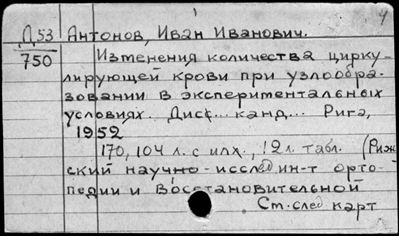 1
4
Д53 Антонов, Иван Иванович.
750 Изменения количества цирку-
лирующей крови при узлообра-
зовании в экспериментальных
условиях. Дисс... канд... Рига,
1952
170, 104 л. с илл., 12 л. табл. (Риж-
ский научно-исслед ин-т орто-
педии и восстановительной
См. след карт